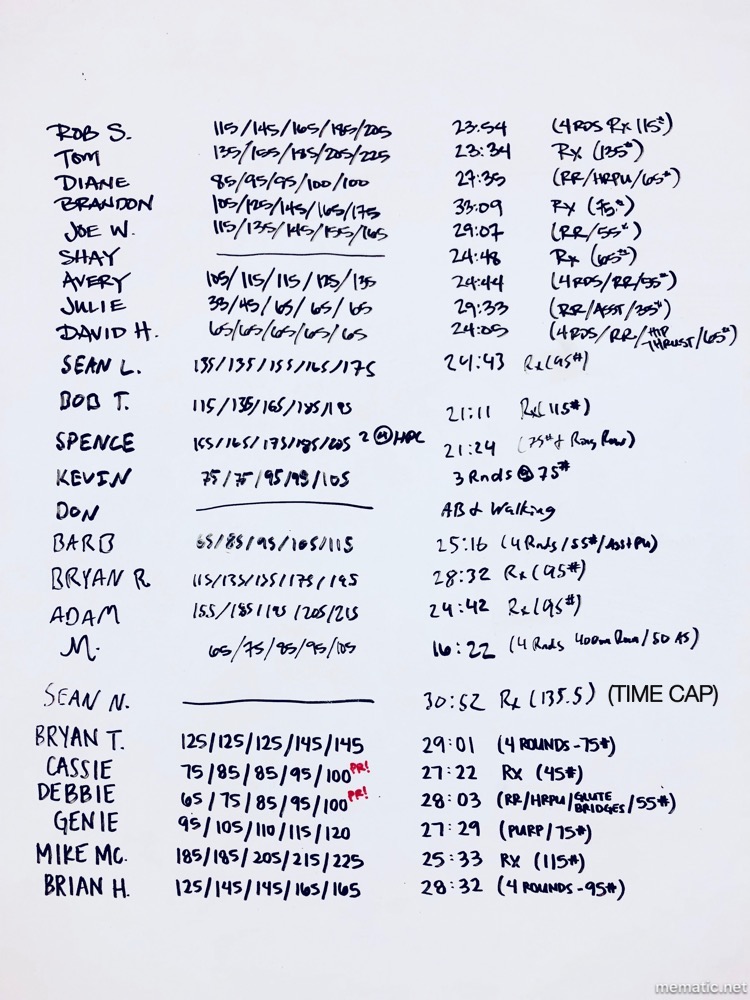 ROB S. 115/145/165/185/205 23:54 (4 RDS Rx 115#)
TOM 135/155/185/205/225 23:34 Rx (135#)
DIANE 85/95/95/100/100 27:35 (RR/HRPU/65#)
BRANDON 105/125/145/165/175 33:09 Rx (75#)
JOE W. 115/135/145/155/165 29:07 (RR/55#)
SHAY 24:48 Rx (65#)
AVERY 105/115/115/125/135 24:44 (4 RDS/RR/55#)
JULIE 35/45/65/65/65 29:33 (RR/ASST/35#)
DAVID H. 65/65/65/65/65 24:05 (4 RDS/RR/HIP THRUST/65#)
SEAN L. 135/135/155/165/175 24:43 Rx (95#)
BOB T. 115/135/165/185/195 21:11 Rx (115#)
SPENCE 155/165/175/185/205 2 @ HPC 21:24 (75# & Ring Row)
KEVIN 75/75/95/95/105 3 Rnds @ 75#
DON AB & Walking
BARB 65/85/95/105/115 25:16 (4 Rnds/55#/Asst Pu)
BRYAN R. 115/135/155/175/195 28:32 Rx (95#)
ADAM 155/185/195/205/215 24:42 Rx (95#)
M. 65/75/85/95/105 16:22 (4 Rnds 400m Run/50 AS)
SEAN N. 30:52 Rx (135.5) (TIME CAP)
BRYAN T. 125/125/125/145/145 29:01 (4 ROUNDS-75#)
CASSIE 75/85/85/95/100 PR! 27:22 Rx (45#)
DEBBIE 65/75/85/95/100 PR! 28:03 (RR/HRPU/GLUTE BRIDGES/55#)
GENIE 95/105/110/115/120 27:29 (PURP/75#)
MIKE MC. 185/185/205/215/225 25:33 Rx (115#)
BRIAN H. 125/145/145/165/165 28:32 (4 ROUNDS-95#)
mematic.net